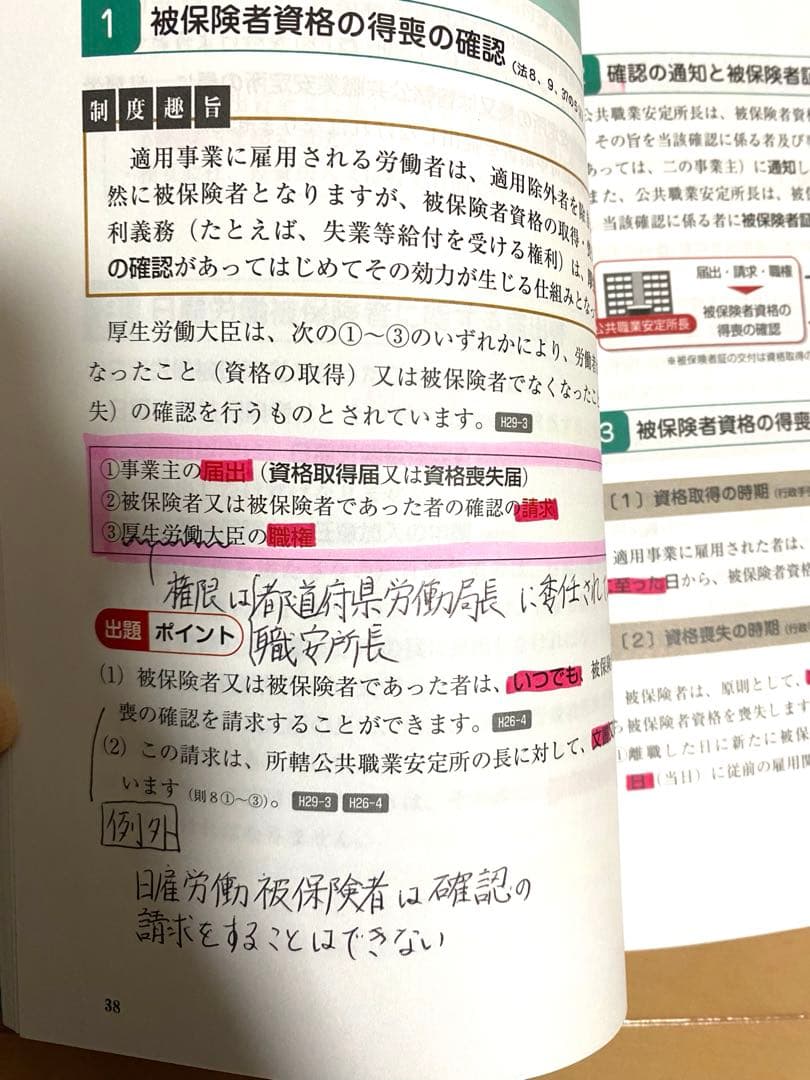 1 被保険者資格の得喪の確認 (法8、9、37の5
制度趣旨
適用事業に雇用される労働者は、適用除外者を除
然に被保険者となりますが、被保険者資格の取得・
利義務（たとえば、失業等給付を受ける権利）は、
の確認があってはじめてその効力が生じる仕組みとなっ
厚生労働大臣は、次の①〜③のいずれかにより、労働者
なったこと（資格の取得）又は被保険者でなくなったこ
失）の確認を行うものとされています。 H29-3
①事業主の届出（資格取得届又は資格喪失届）
②被保険者又は被保険者であった者の確認の請求
③厚生労働大臣の職権
権限は 都道府県労働局長 に委任され
職安所長
出題 ポイント
(1) 被保険者又は被保険者であった者は、いつでも、被保険
喪の確認を請求することができます。 H26-4
(2) この請求は、所轄公共職業安定所の長に対して、文
います（則8①〜③）。 H29-3 H26-4
例外
日雇労働被保険者は確認の
請求をすることはできない
38
確認の通知と被保険者証
公共職業安定所長は、被保険者資格
その旨を当該確認に係る者及び
あっては、二の事業主）に通知し
また、公共職業安定所長は、被
当該確認に係る者に被保険者証
届出・請求・職権
被保険者資格の
得喪の確認
公共職業安定所長
※被保険者証の交付は資格取得の
3 被保険者資格の得喪
〔1〕資格取得の時期（行政手
適用事業に雇用された者は、
に至った日から、被保険者資格
〔2〕資格喪失の時期（行政
被保険者は、原則として、
ら被保険者資格を喪失します
離職した日に新たに被保
日（当日）に従前の雇用関